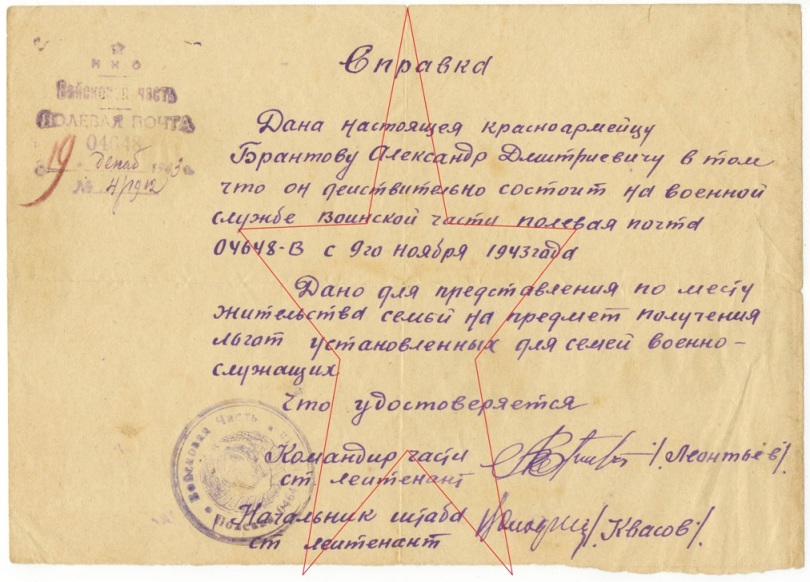 Н К О
Войсковая часть
ПОЛЕВАЯ ПОЧТА
04648
19 декаб 1943 г
№ 4/1912
Справка
Дана настоящея красноармейцу
Брантову Александр Дмитриевичу в том
что он действительно состоит на военной
службе воинской части полевая почта
04648-В с 9го ноября 1943 года
Дано для представления по месту
жительства семьи на предмет получения
льгот установленных для семей военно-
служащих
Что удостоверяется
Командир части
ст леитенант /Леонтьев/.
Начальник штаба
ст леитенант /.Квасов/.
Войсковая Часть